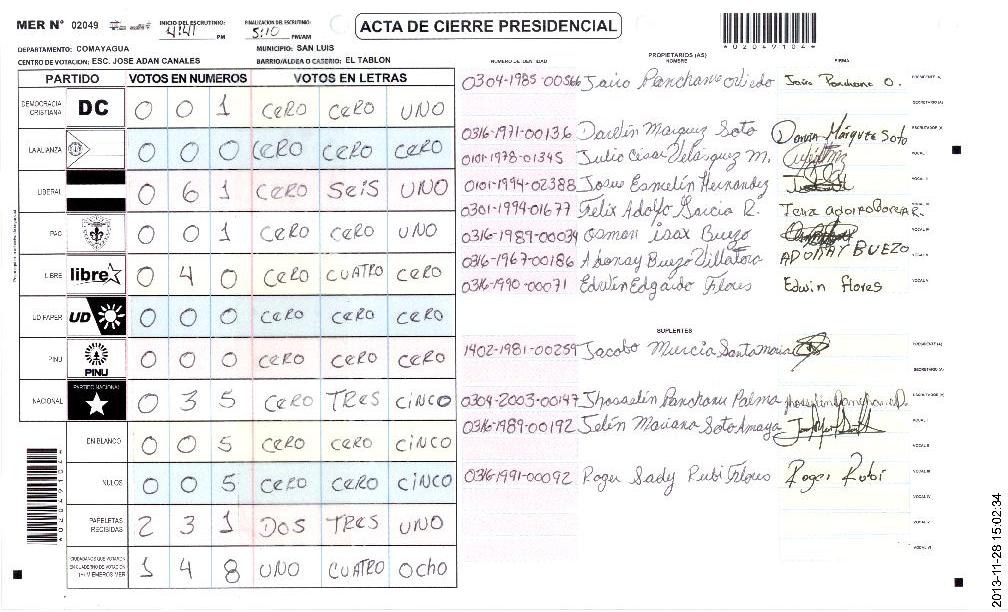 MER N° 02049
INICIO DEL ESCRUTINIO: 4:41 PM
FINALIZACION DEL ESCRUTINIO: 5:10 PM/AM
ACTA DE CIERRE PRESIDENCIAL
*02049104*
DEPARTAMENTO: COMAYAGUA
MUNICIPIO: SAN LUIS
CENTRO DE VOTACION: ESC. JOSE ADAN CANALES
BARRIO/ALDEA O CASERIO: EL TABLON
PARTIDO VOTOS EN NUMEROS VOTOS EN LETRAS
DEMOCRACIA CRISTIANA DC 0 0 1 CERO CERO UNO
LA ALIANZA 0 0 0 CERO CERO CERO
LIBERAL 0 6 1 CERO SEIS UNO
PAC 0 0 1 CERO CERO UNO
LIBRE libre 0 4 0 CERO CUATRO CERO
UD FAPER UD 0 0 0 CERO CERO CERO
PINU PINU 0 0 0 CERO CERO CERO
NACIONAL PARTIDO NACIONAL 0 3 5 CERO TRES CINCO
EN BLANCO 0 0 5 CERO CERO CINCO
NULOS 0 0 5 CERO CERO CINCO
PAPELETAS RECIBIDAS 2 3 1 DOS TRES UNO
CIUDADANOS QUE VOTARON EN CUADERNO DE VOTACION (+) MIEMBROS MER 1 4 8 UNO CUATRO OCHO
NUMERO DE IDENTIDAD PROPIETARIOS (AS) NOMBRE FIRMA
0304-1985-00566 Jairo Panchame Oviedo Jairo Panchame O. PRESIDENTE (A)
SECRETARIO (A)
0316-1971-00136 Darlin Marquez Soto Danin Márquez Soto ESCRUTADOR (A)
0101-1978-01345 Julio César Velásquez M. VOCAL I
0101-1994-02388 Josue Esmelin Hernandez VOCAL II
0301-1994-01677 Felix Adolfo Garcia R. Felix Adolfo Garcia R. VOCAL III
0316-1989-00034 Osman isax Buezo VOCAL IV
0316-1967-00186 Adonay Buezo Villatoro ADONAY BUEZO VOCAL V
0316-1990-00071 Edwin Edgardo Flores Edwin flores VOCAL VI
SUPLENTES
1402-1981-00259 Jacobo Murcia Santamaria PRESIDENTE (A)
SECRETARIO (A)
0304-2003-00147 Jhosselin Panchame Palma Jhosselin Panchame P. ESCRUTADOR (A)
0316-1989-00192 Jelin Mariana Soto Amaya VOCAL I
VOCAL II
0316-1991-00092 Roger Sady Rubi Flores Roger Rubi VOCAL III
VOCAL IV
VOCAL V
VOCAL VI
2013-11-28 15:02:34